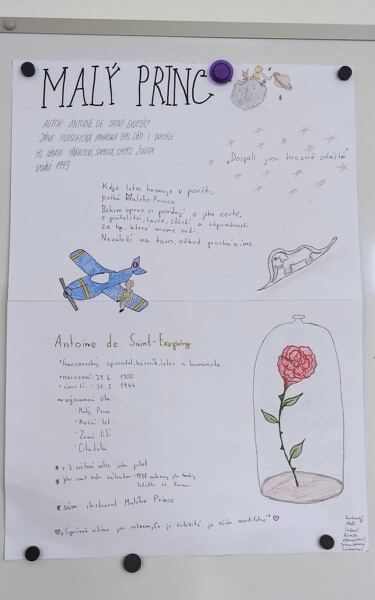 MALÝ PRINC
AUTOR: ANTOINE DE SAINT-EXUPÉRY
ŽÁNR: FILOSOFICKÁ POHÁDKA PRO DĚTI I DOSPĚLÉ
HL. TÉMATA: PŘÁTELSTVÍ, SAMOTA, SMYSL ŽIVOTA
1943
„Dospělí jsou hrozně zvláštní"
Když letec havaruje v poušti,
potká Malého Prince.
Během oprav si povídají o jeho cestě,
o přátelství, lásce, štěstí a odpovědnosti
za ty, které máme rádi.
Nezáleží na tom, odkud pocházíme.
Antoine de Saint-Exupéry
francouzský spisovatel, básník, letec a humanista
narození: 29. 6. 1900
úmrtí: 31. 7. 1944
významná díla
- Malý Princ
- Noční let
- Země lidí
- Citadela
* v 2. světové válce jako pilot
* sám ilustroval Malého Prince
„Správně vidíme jen srdcem, Co je důležité, je očím neviditelné"